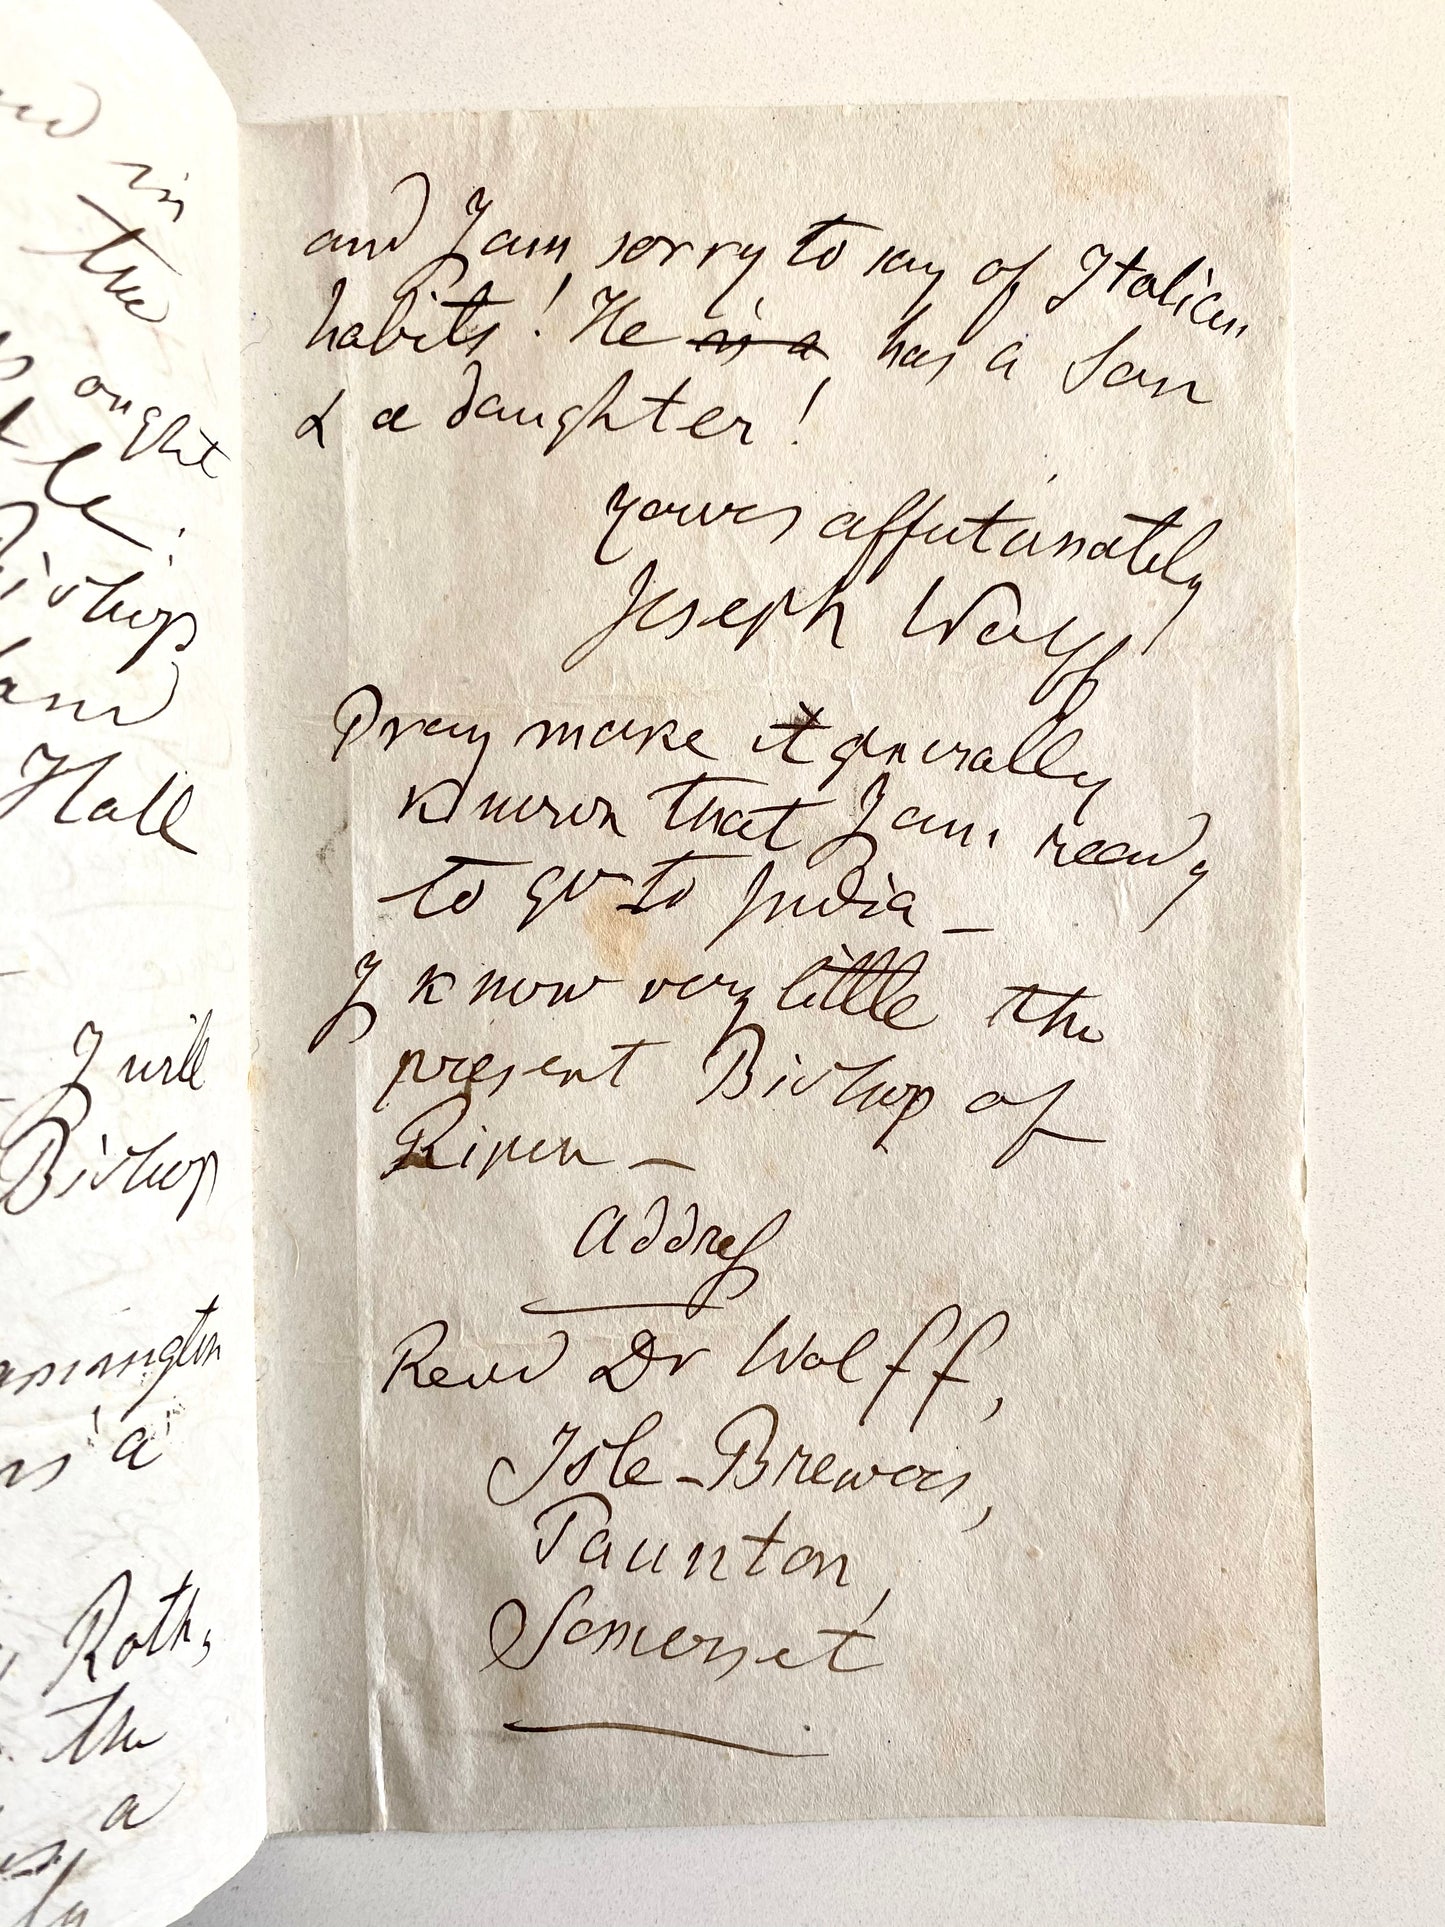 in
the
ought
Bishop
Hall
I will
Bishop
a
Roth,
the
a
and I am sorry to say of Italian
habits! He is a has a Son
& a daughter!
Yours affectionately
Joseph Wolff
Pray make it generally
known that I am ready
to go to India –
I know very little the
present Bishop of
Ripon –
Address
Revd Dr Wolff,
Isle-Brewers,
Taunton,
Somerset